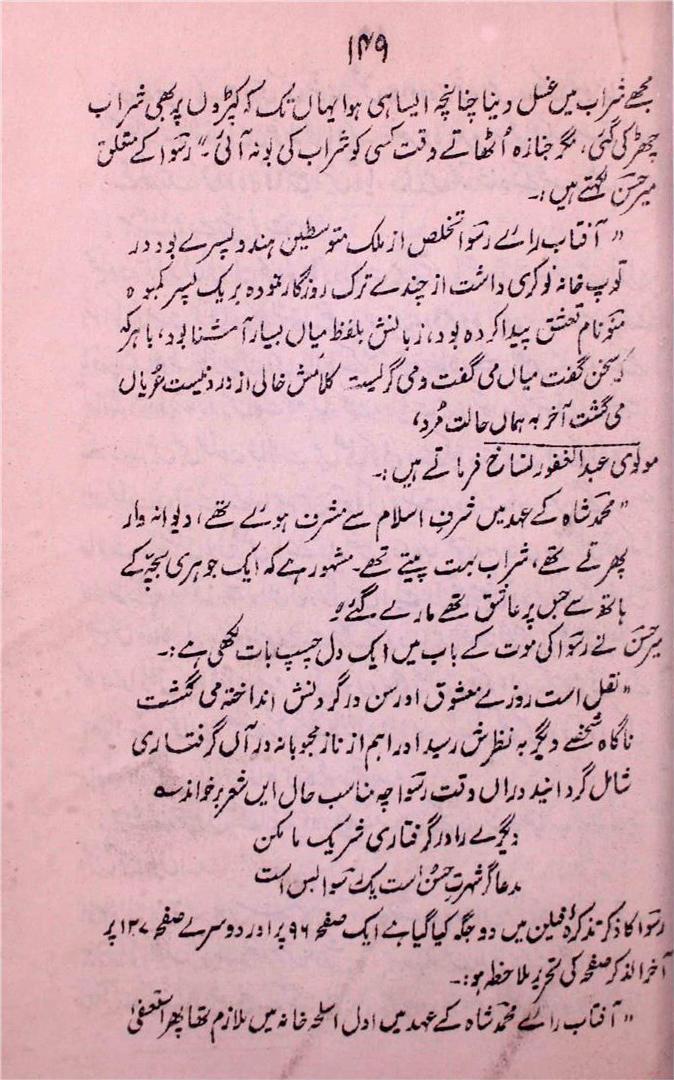 ۱۴۹
مجھے شراب میں غسل دینا چنانچہ ایسا ہی ہوا یہاں تک کہ کپڑوں پر بھی شراب
چھڑکی گئی، مگر جنازہ اُٹھاتے وقت کسی کو شراب کی بو نہ آئی۔" رسوا کے متعلق
میر حسن لکھتے ہیں:۔
" آفتاب رائے رسوا تخلص از ملک متوسطین ہندو پسرے بود در
توپ خانہ نوکری داشت از چندے ترک روزگار نمودہ بر یک پسر کمبوہ
منو نام تعشق پیدا کردہ بود، زبانش بلفظ میاں بسیار آشنا بود، با ہر کہ
کہ سخن گفت میاں می گفت و می گریست کلامش خالی از درد نیست عُریاں
می گشت آخر بہ ہماں حالت مُرد،
مولوی عبدالغفور نساخ فرماتے ہیں:۔
" محمد شاہ کے عہد میں شرفِ اسلام سے مشرف ہوئے تھے، دیوانہ وار
پھرتے تھے، شراب بہت پیتے تھے۔ مشہور ہے کہ ایک جوہری بچّہ کے
ہاتھ سے جس پر عاشق تھے مارے گئے"
میر حسن نے رسوا کی موت کے باب میں ایک دل چسپ بات لکھی ہے:۔
" نقل است روزے معشوق او رسن در گردنش انداختہ می گشت
ناگاہ شخصے دیگر بہ نظرش رسید او را ہم از ناز محبوبانہ در آں گرفتاری
شامل گردانید دراں وقت رسوا چہ مناسب حال ایں شعر برخواند ؎
دیگرے را در گرفتاری شریک ما مکن
مدعا گر شہرتِ حُسن است یک رسوا بس است
رسوا کا ذکر تذکرۂ میں دو جگہ کیا گیا ہے ایک صفحہ ۹۶ پر اور دوسرے صفحہ ۱۳۷ پر
آخر الذکر صفحہ کی تحریر ملاحظہ ہو:۔
" آفتاب رائے محمد شاہ کے عہد میں اول اسلحہ خانہ میں ملازم تھا پھر استعفیٰ